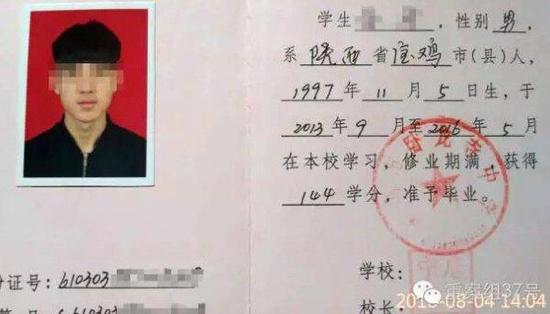 学生 ，性别 男 ，
系 陕西 省 宝鸡 市(县)人，
1997 年 11 月 5 日生，于
2013 年 9 月至 2016 年 5 月
在本校学习，修业期满，获得
144 学分，准予毕业。
份证号: 610303
学校:
校长:
重案组37号
08-04 14:04